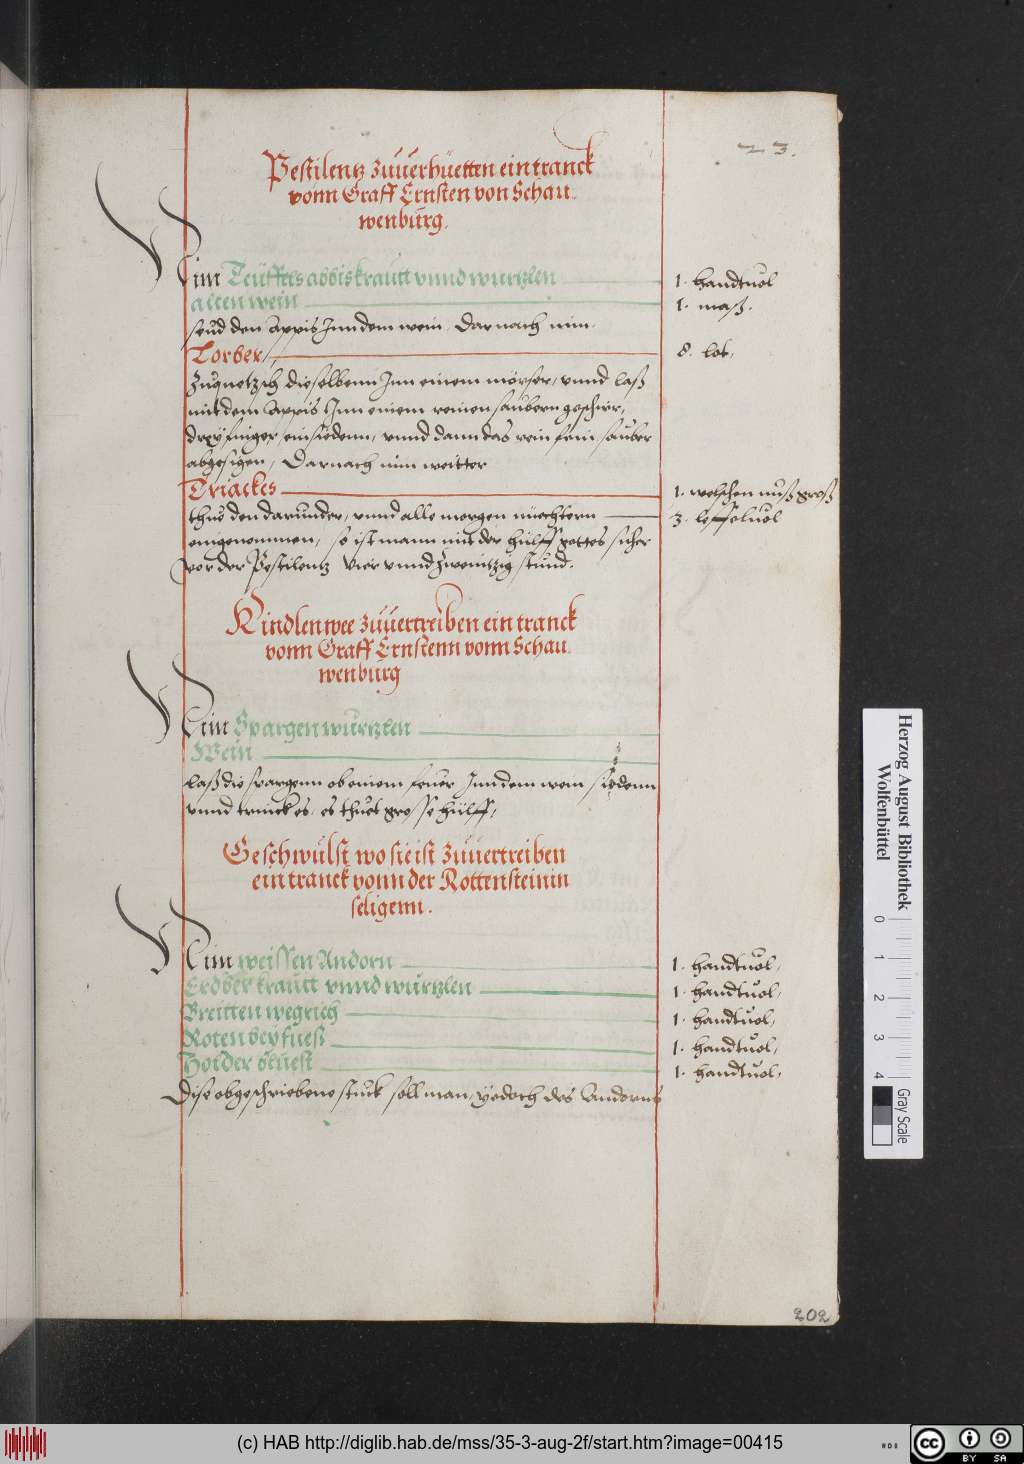 23.
Pestilentz zuuerhuetten ein tranck
vonn Graff Ernsten von Schau
wenburg.
Nim Teuffels abbiskrautt vnnd wurtzlen 1. handtuol
alten wein 1. maß.
seud den appis Inn dem wein. Darnach nim
Lorber 8. lot,
Zuquetzsch dieselbenn Inn einem mörser, vnnd laß
mit dem Appis Inn einem reinen saubern geschirr,
dreyfinger einsiedenn, vnnd dann das rein fein sauber
abgesigen, Darnach nim weitter
Triackes 1. welschen nuß groß
thue den darunder, vnnd alle morgen nüechtern 3. leffeluol
eingenommen, so ist mann mit der hülff gottes sicher
vor der Pestilentz vier vnnd zweintzig stund.
Kindlenwee zuuertreiben ein tranck
vonn Graff Ernstenn vonn Schau
wenburg
Nim Spargenwurtzlen
Wein
laß die spargenn ob einem feuer Inn dem wein siedenn
vnnd trinck es, es thuet grosse hülff,
Geschwulst wo sie ist zuuertreiben
ein tranck vonn der Rottensteinin
seligenn.
Nim weissen Andorn 1. handtuol,
Erdberkrautt vnnd wurtzlen 1. handtuol,
Breitten wegrich 1. handtuol,
Roten beyfuess 1. handtuol,
Holder bluest 1. handtuol,
Dise obgeschriebene stuck soll man, yedoch des Andorns
202
Herzog August Bibliothek
Wolfenbüttel
0 1 2 3 4
Gray Scale
(c) HAB http://diglib.hab.de/mss/35-3-aug-2f/start.htm?image=00415
HAB
cc BY SA